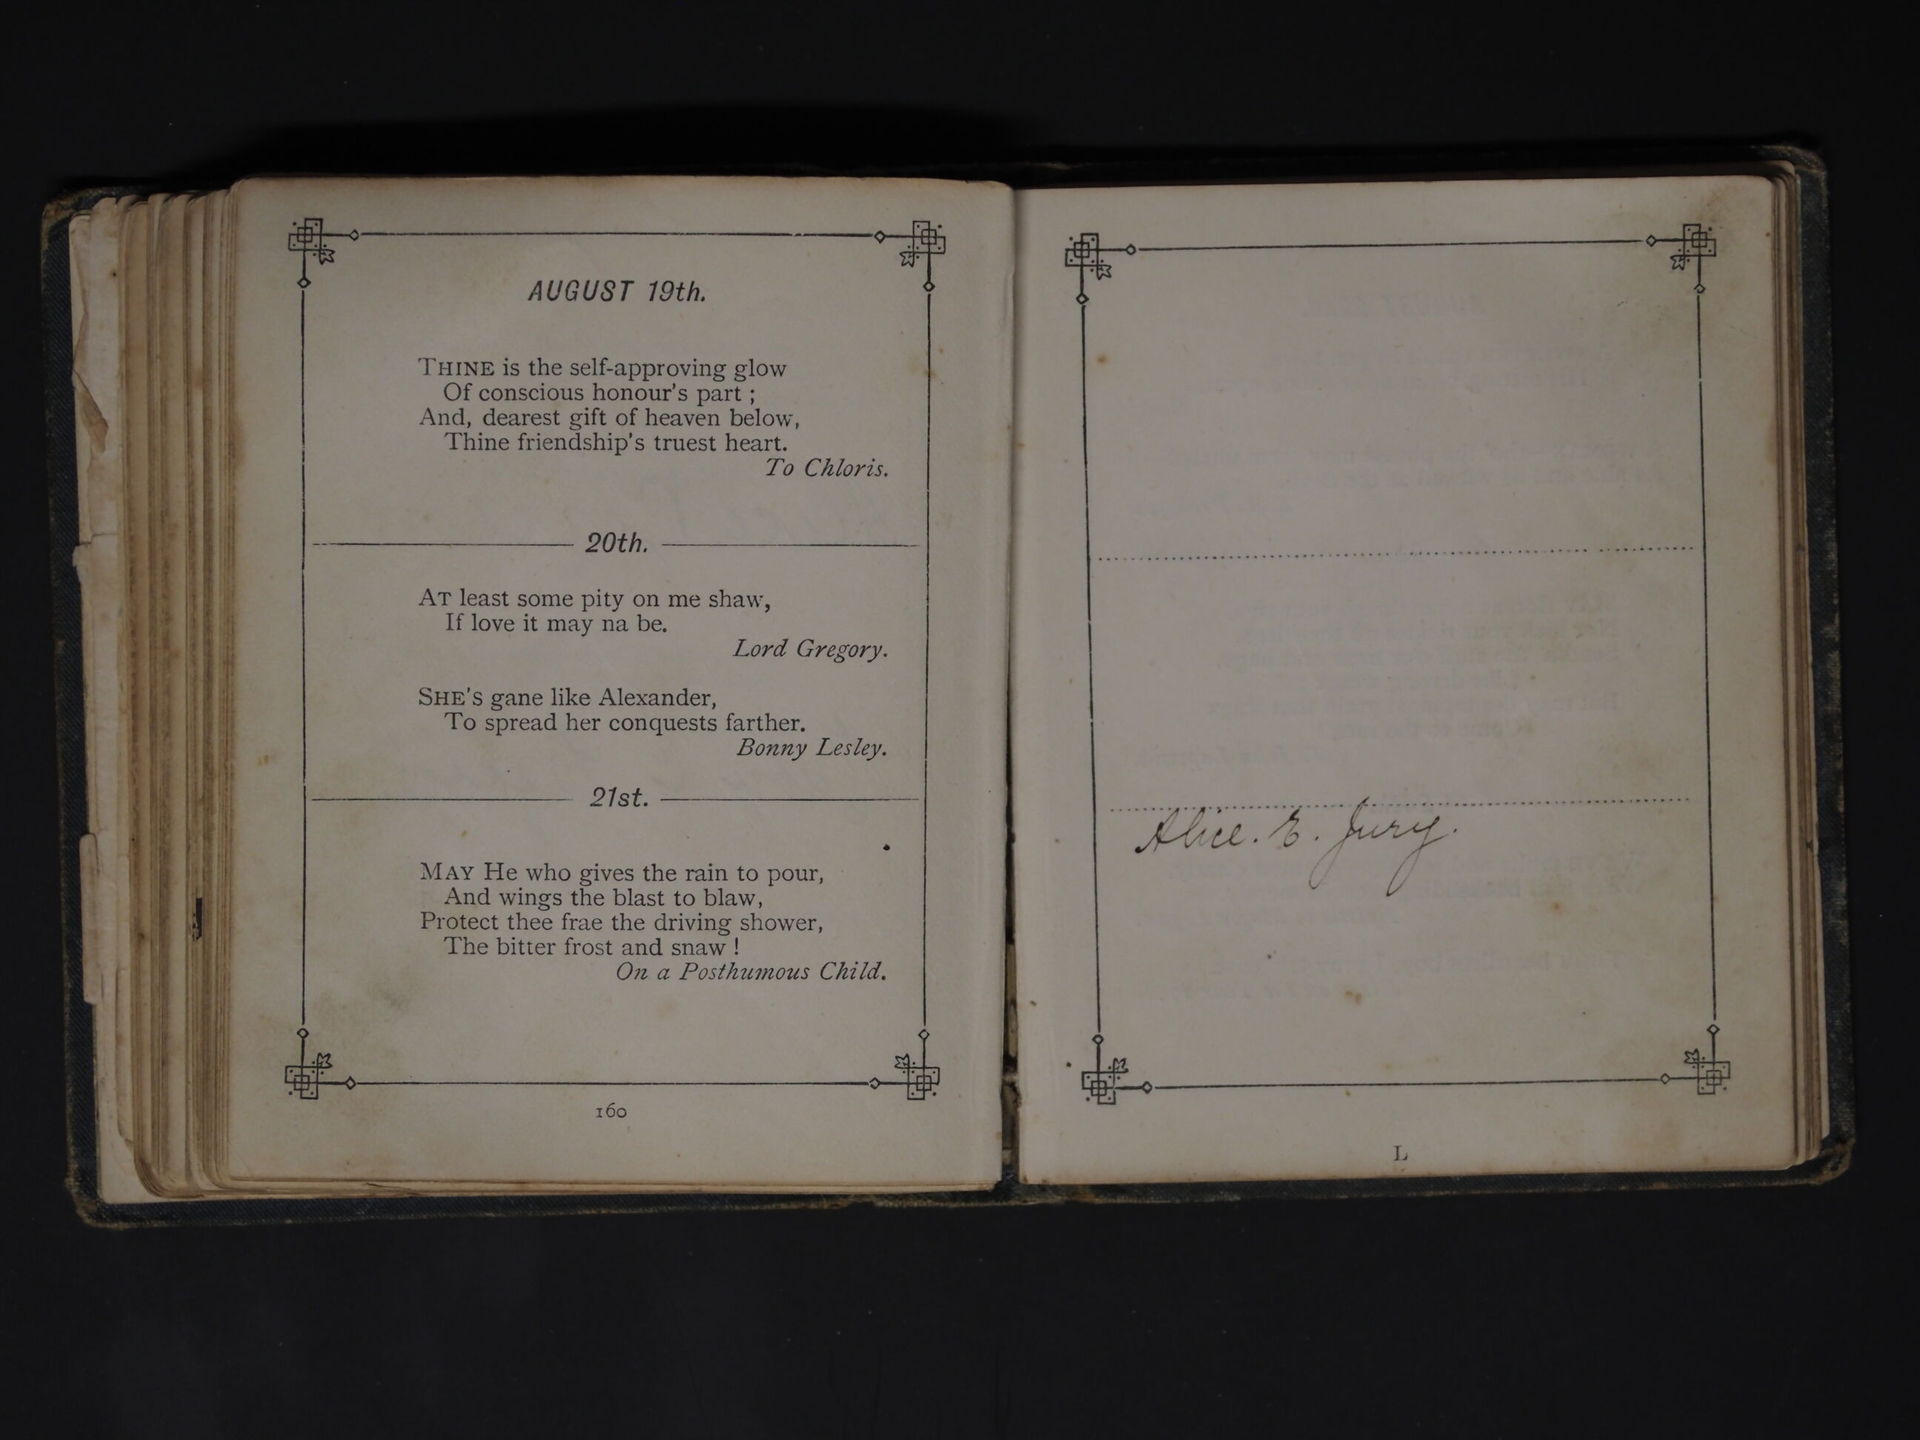 AUGUST 19th.
THINE is the self-approving glow
Of conscious honour's part ;
And, dearest gift of heaven below,
Thine friendship's truest heart.
To Chloris.
20th.
AT least some pity on me shaw,
If love it may na be.
Lord Gregory.
SHE'S gane like Alexander,
To spread her conquests farther.
Bonny Lesley.
21st.
MAY He who gives the rain to pour,
And wings the blast to blaw,
Protect thee frae the driving shower,
The bitter frost and snaw !
On a Posthumous Child.
160
Alice. E. Jury.
L